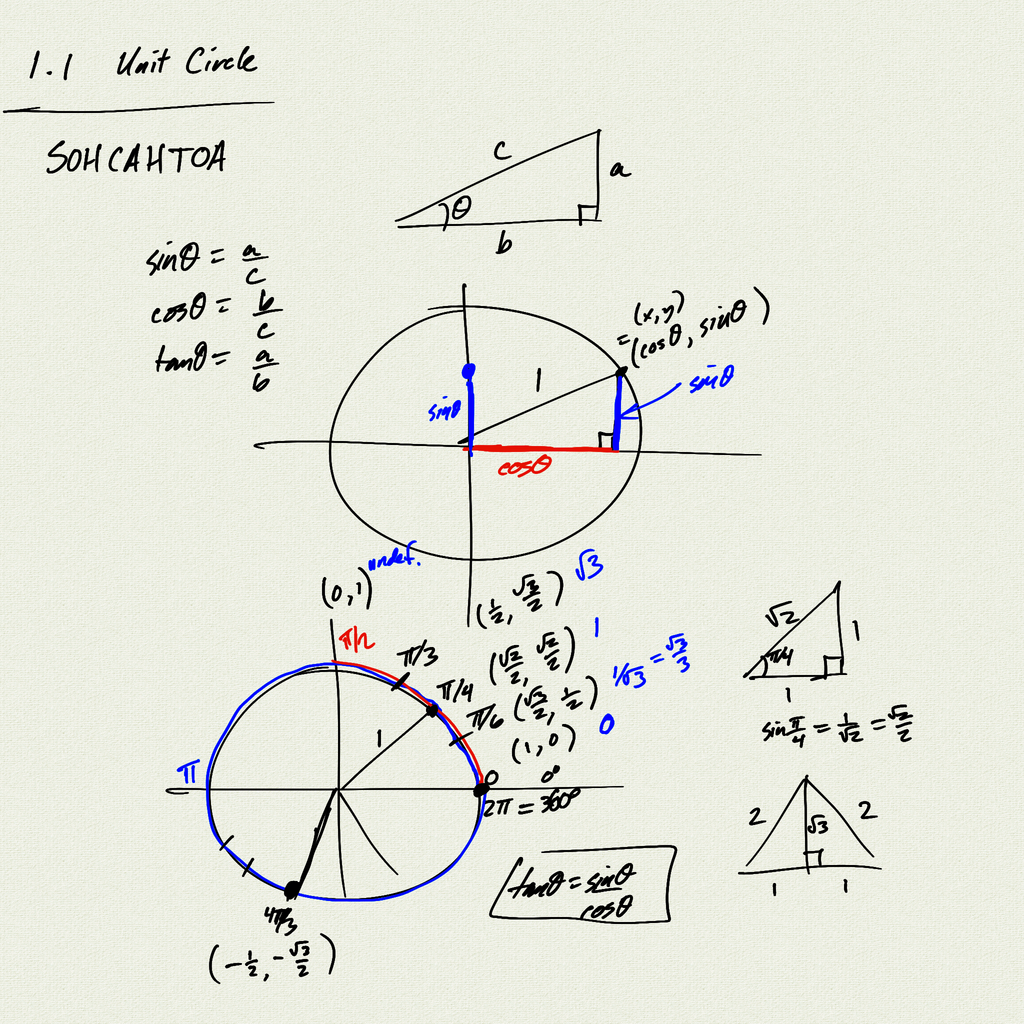 1.1 Unit Circle
SOHCAHTOA
c
a
θ
b
sinθ = a/c
cosθ = b/c
tanθ = a/b
(x,y)
= (cosθ, sinθ)
1
sinθ
sinθ
cosθ
undef.
(0,1)
π/2
(1/2, √3/2) √3
π/3
(√2/2, √2/2) 1
π/4
π/6
(√3/2, 1/2) 1/√3 = √3/3
(1,0) 0
1
π
0 0°
2π = 360°
4π/3
(-1/2, -√3/2)
tanθ = sinθ/cosθ
√2
1
π/4
1
sin π/4 = 1/√2 = √2/2
2
√3
2
1
1